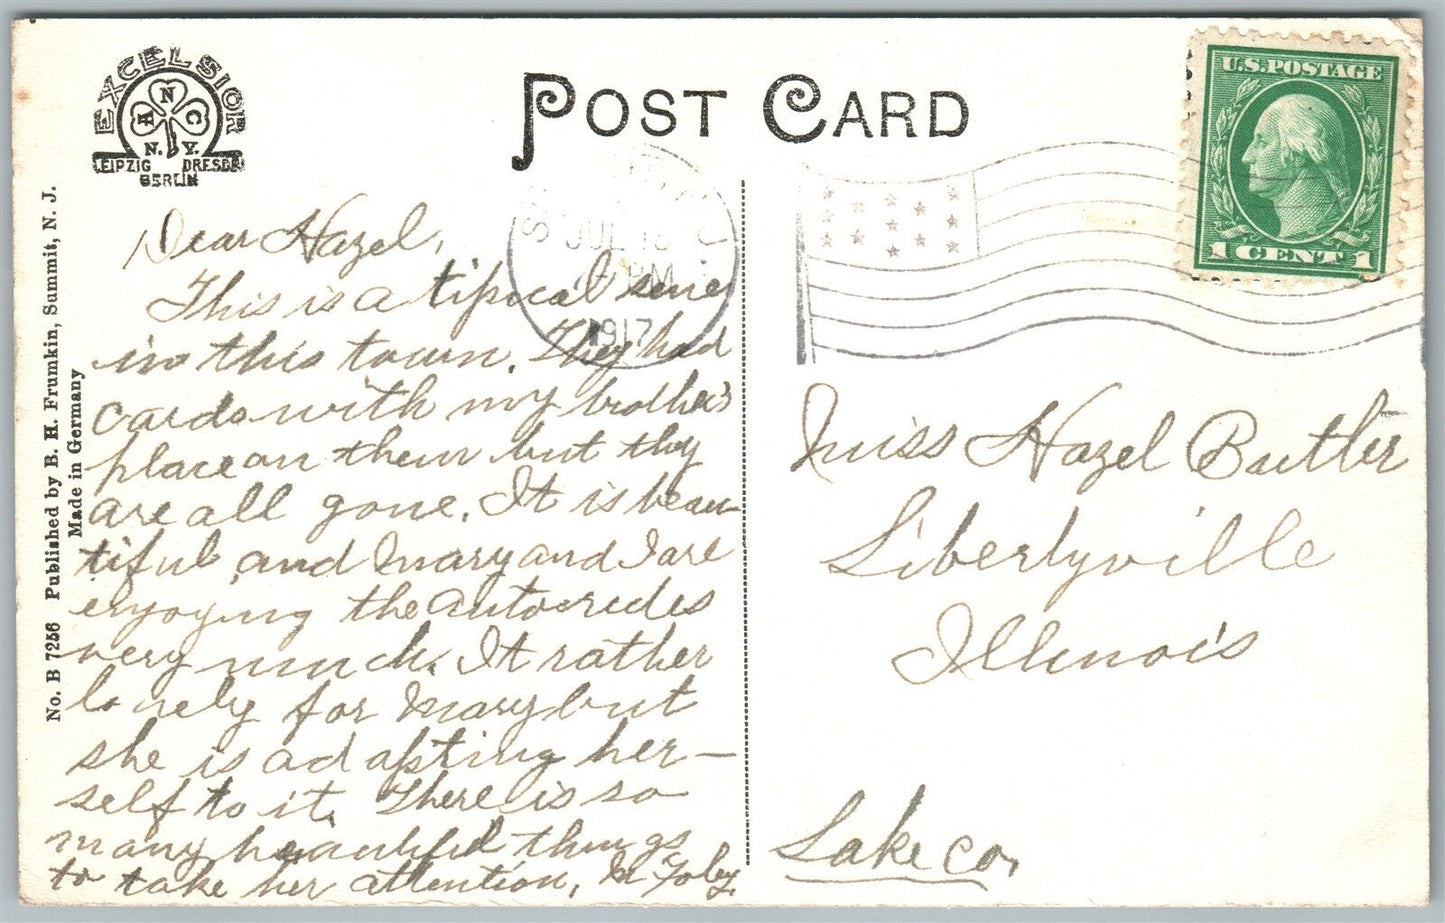 EXCELSIOR
A N C
N. Y.
LEIPZIG DRESDEN
BERLIN
POST CARD
U.S. POSTAGE
1 CENT 1
JUL 18
PM
1917
No. B 7256 Published by B. H. Frumkin, Summit, N. J.
Made in Germany
Dear Hazel,
This is a tipical sene
in this town. They had
cards with my brother's
place on them but they
are all gone. It is beau-
tiful and Mary and I are
enjoying the auto-rides
very much. It rather
lonely for Mary but
she is adapting her-
self to it. There is so
many beautiful things
to take her attention. M Foley.
Miss Hazel Butler
Libertyville
Illinois
Lake Co.